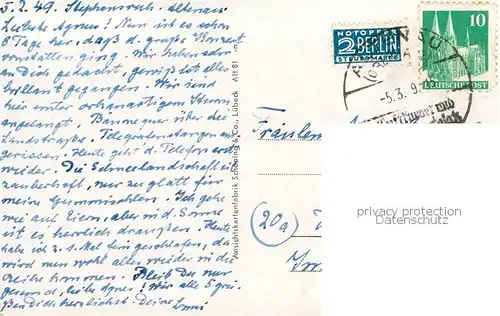 5.3.49. Stephansruh. Altenau
Liebe Agnes! Nun ist es schon
8 Tage her, daß d. große Konzert
vonstatten ging. Wir haben sehr
an Dich gedacht, gewiß ist alles
brillant gegangen. Wir sind
hier unter orkanartigem Sturm
angelangt. Bäume quer über die
Landstraße. Telegrafenstangen
gerissen. Heute geht d. Telefon erst
wieder. Die Schneelandschaft ist
zauberhaft, nur zu glatt für
meine Gummisohlen. Ich gehe
wie auf Eiern, aber mit d. Sonne
ist es herrlich draußen. Heute
habe ich z. 1. Mal fein geschlafen, da
wird man wohl alles wieder in die
Reihe kommen. Bleib Du nur
gesund, liebe Agnes! Wir alle 5 grü-
ßen Dich herzlichst. Deine
Ansichtskartenfabrik Schöning & Co., Lübeck
Alt 81
NOTOPFER
2 BERLIN
STEUERMARKE
-5.3.9
10
DEUTSCHE POST
Fräulein
(20a)
privacy protection
Datenschutz